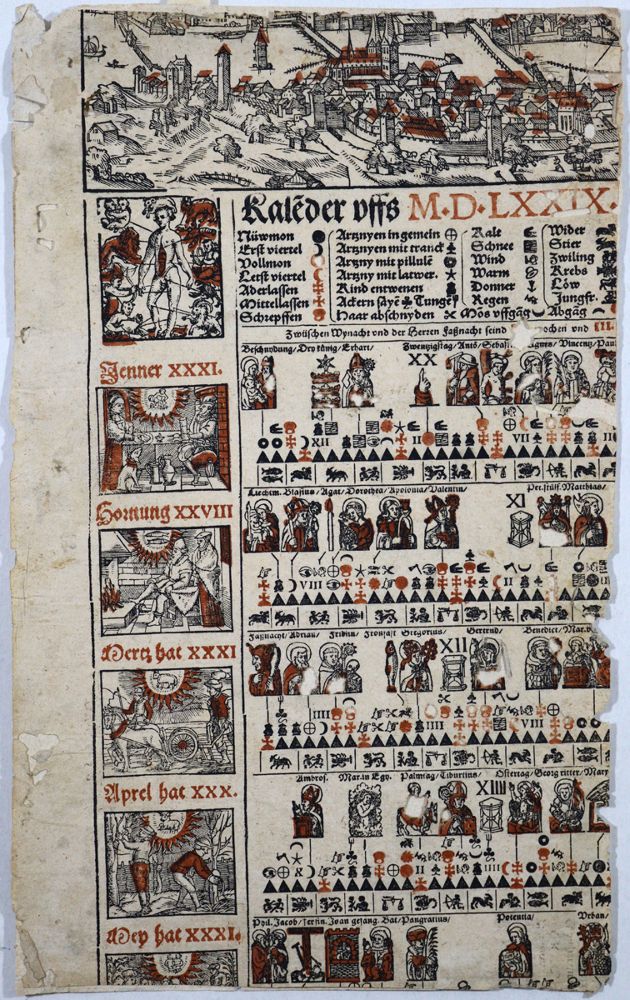 Kalēder vffs M·D·LXXIX·
Nüwmon
Erst viertel
Vollmon
Letst viertel
Aderlassen
Mittellassen
Schrepffen
Artznyen in gemein
Artznyen mit tranck
Artzny mit pillulē
Artzny mit latwer.
Kind entwenen
Ackern sayē Tunge
Haar abschnyden
Kalt
Schnee
Wind
Warm
Donner
Regen
Mōs vffgāg
Wider
Stier
Zwiling
Krebs
Löw
Jungfr.
Abgāg
Zwüschen Wynacht vnd der Herren Faßnacht seind wochen vnd
Jenner XXXI.
Beschnydung/ Dry künig/ Erhart/ Zwentzigstag/ Antō/ Sebast Vincentz/ Pau
XX
XII II VII II
Hornung XXVIII
Liechtm. Blasius/ Agat/ Dorothea/ Apolonia/ Valentin/ Pet. stülf. Matthias/
XI
VIII II
Mertz hat XXXI
Faßnacht/ Adrian/ Fridlin/ Fronfast Gregorius/ Gertrud/ Benedict/ Mar.
XII
IIII IIII VIII
Aprel hat XXX.
Ambros. Mar. in Egy. Palmtag/ Tiburtius/ Ostertag/ Georg ritter/ Marx
XIIII
Mey hat XXXI.
Phil. Jacob/ Johan gefang. Bat/ Pangratius/ Potentia/ Vrban/